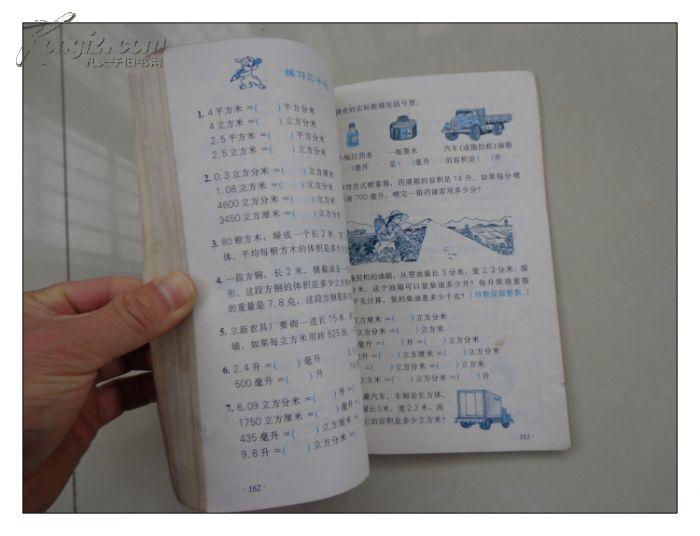 Kongfz.com
孔夫子旧书网
练习三十七
1. 4平方米=( )平方分米
4立方米=( )立方分米
2.5平方米=( )平方分米
2.5立方米=( )立方分米
2. 0.3立方分米=( )立方厘米
1.08立方米=( )立方分米
4600立方分米=( )立方米
3450立方厘米=( )立方分米
3. 80根方木,垛成一个长2米,宽
体,平均每根方木的体积是多少立
4. 一段方钢,长2米,横截面是一
形,这段方钢的体积是多少立
的重量是7.8克,这段方钢重多
5. 立新农具厂要砌一道长15米,厚
墙,如果每立方米用砖525块,
6. 2.4升=( )毫升
500毫升=( )升
7. 6.09立方分米=( )升=(
1750立方厘米=( )毫升=
435毫升=( )立方厘米=
9.8升=( )立方分米=(
·162·
查的实际数填在括号里。
一瓶红药水
)毫升
一瓶墨水
是( )毫升
汽车(或拖拉机)油箱
的容积是( )升
式喷雾器,药液箱的容积是14升,如果每分喷
液700毫升,喷完一箱药液需用多少分?
拉机的油箱,从里面量长3分米,宽2.3分米,深
分米,这个油箱可以装柴油多少升?每升柴油重按
克计算,装的柴油重多少千克?(得数保留整数。)
立方厘米=( )立方分米
立方分米=( )立方米
毫升=( )升=( )立方分米
升=( )立方厘米=( )立方分米
=( )立方分米=( )立方米
立方米=( )立方分米=( )升
藏汽车,车厢是长方体,
量长3米,宽2.2米,高
它的容积是多少立方米?
·163·